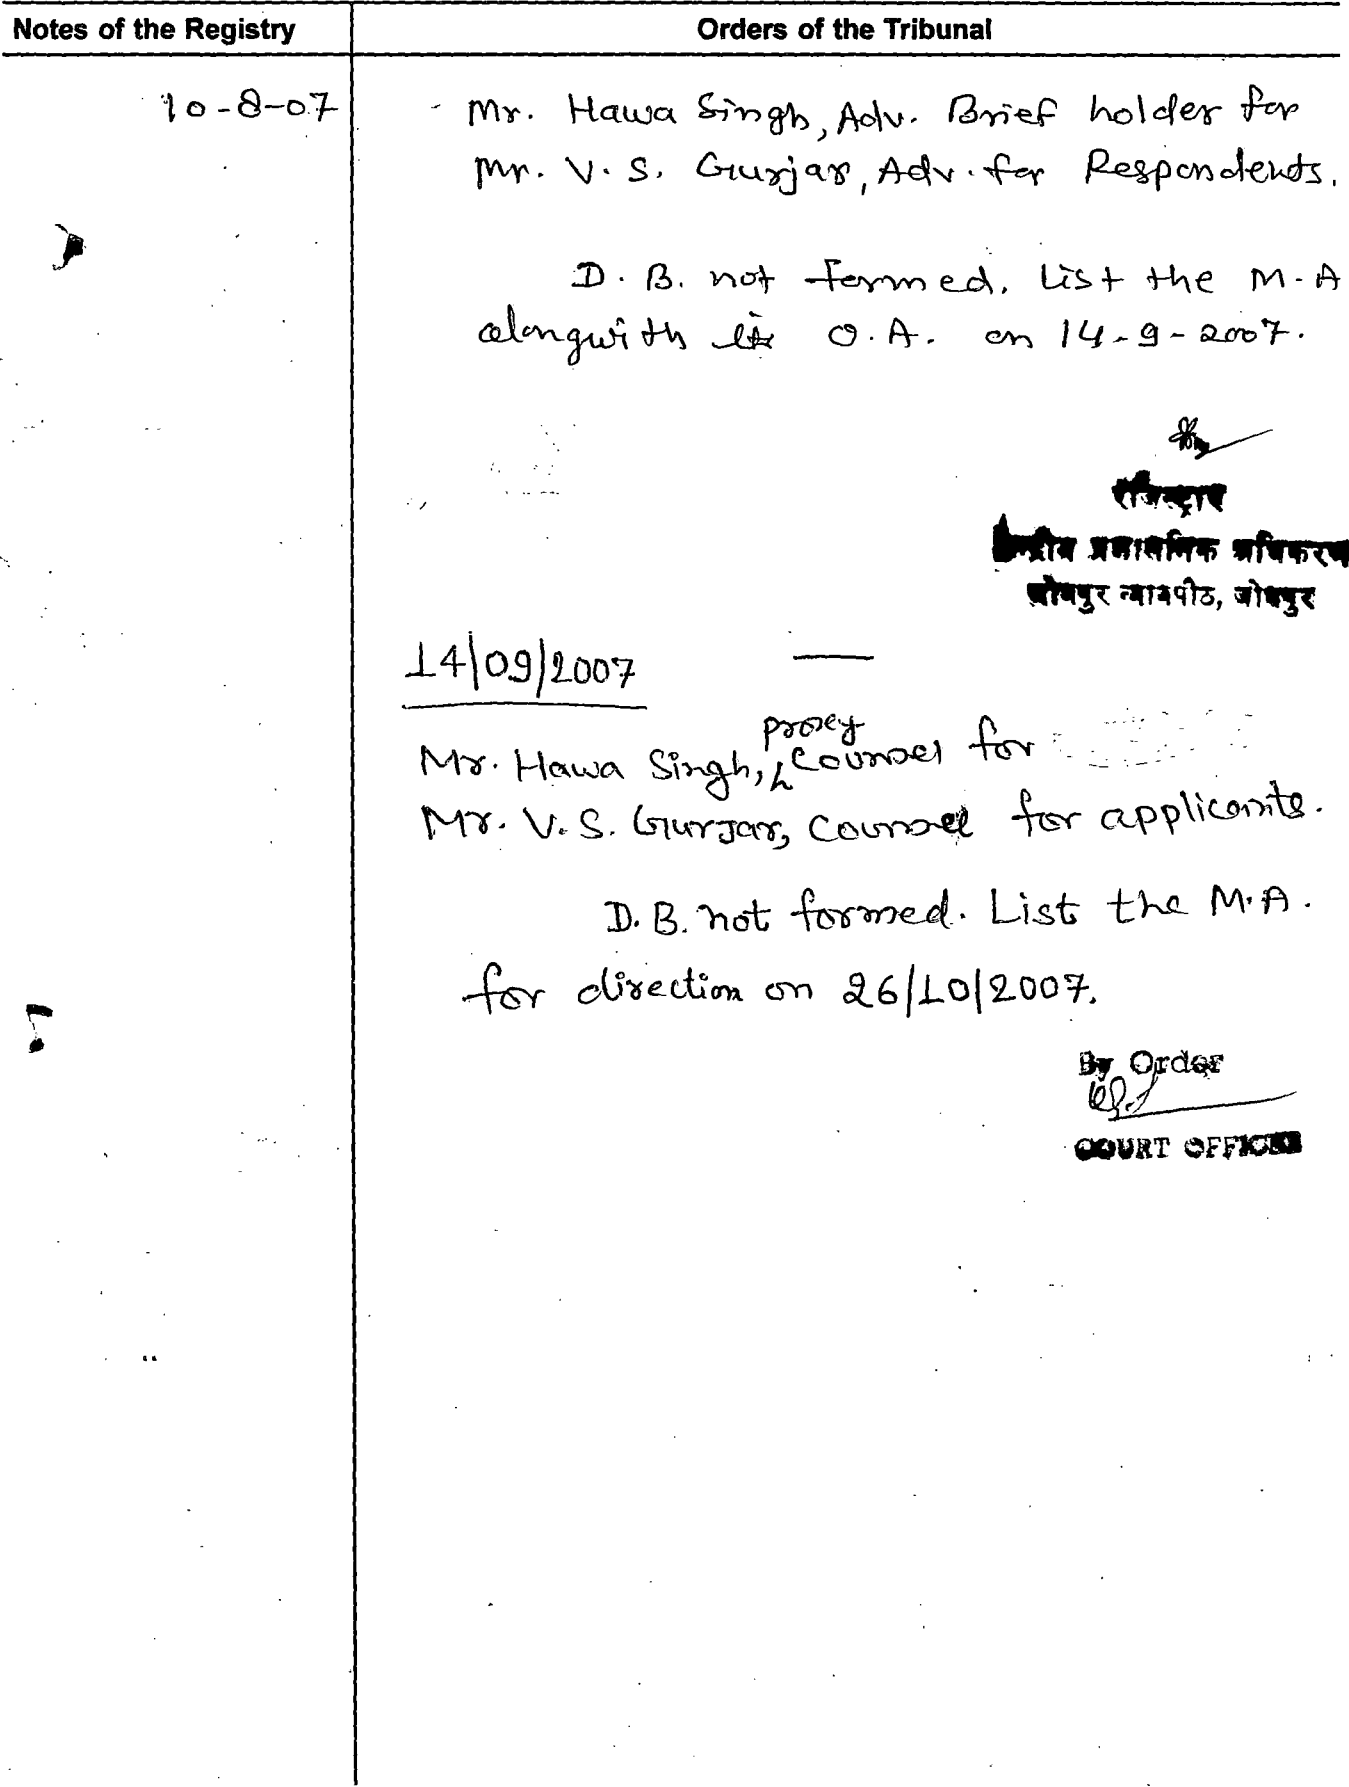 Notes of the Registry
Orders of the Tribunal
10-8-07
Mr. Hawa Singh, Adv. Brief holder for
Mr. V. S. Gurjar, Adv. for Respondents.
D. B. not formed. List the M.A
alongwith O.A. on 14-9-2007.
रजिस्ट्रार
केन्द्रीय प्रशासनिक अधिकरण
जोधपुर न्यायपीठ, जोधपुर
14/09/2007
proxy
Mr. Hawa Singh, Counsel for
Mr. V. S. Gurjar, Counsel for applicants.
D. B. not formed. List the M.A.
for direction on 26/10/2007.
By Order
COURT OFFICER